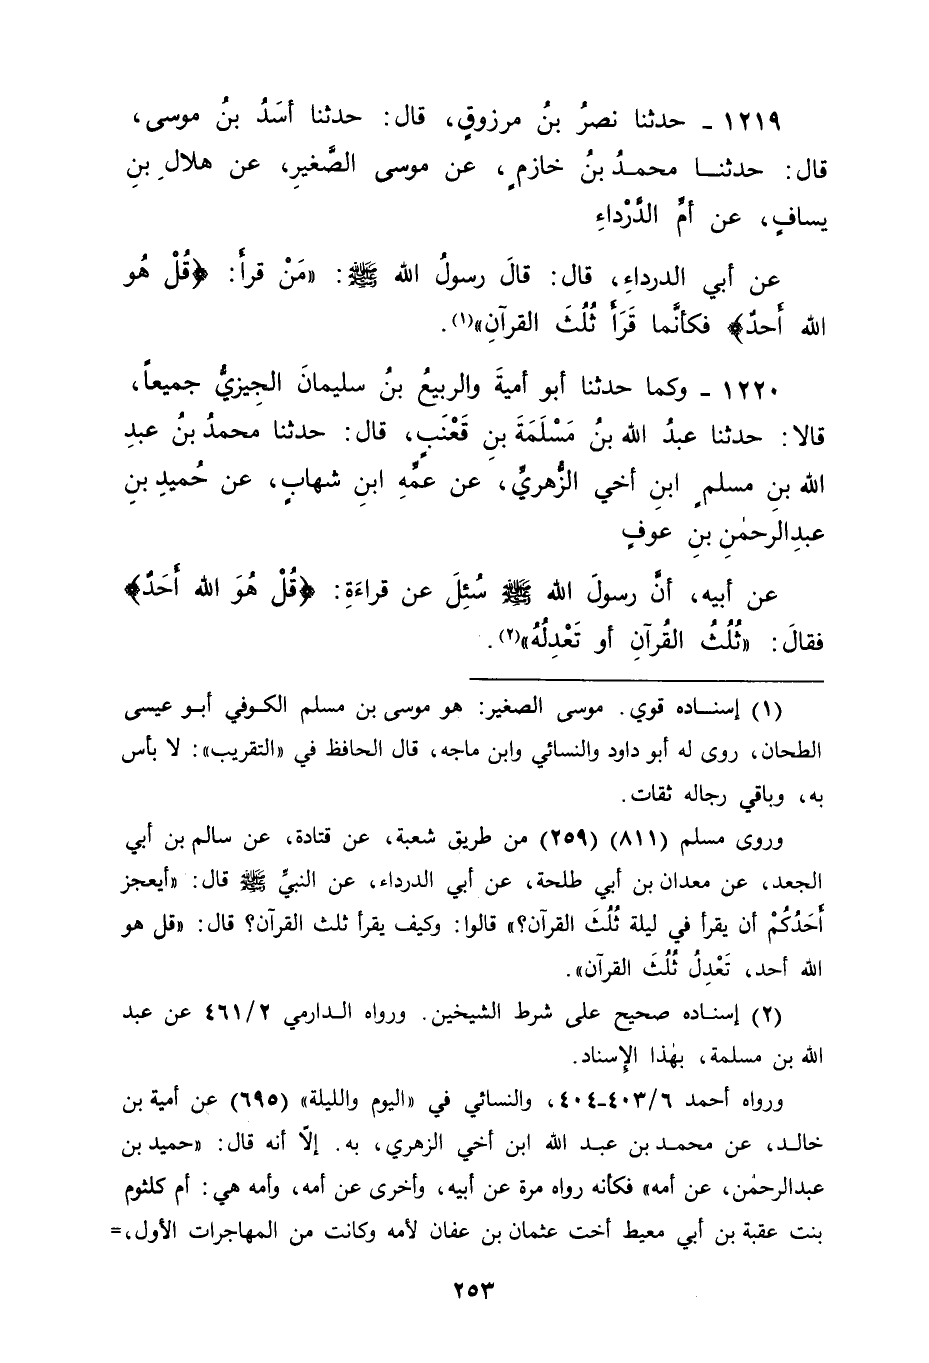 ١٢١٩ ـ حدثنا نصرُ بنُ مرزوقٍ، قال: حدثنا أسَدُ بنُ موسى،
قال: حدثنا محمدُ بنُ خازمٍ، عن موسى الصَّغيرِ، عن هلال بنِ
يسافٍ، عن أمِّ الدَّرْداءِ
عن أبي الدرداءِ، قال: قالَ رسولُ الله ﷺ: «مَنْ قرأَ: ﴿قُلْ هُو
الله أَحدٌ﴾ فكأنَّما قَرَأَ ثُلُثَ القرآنِ»(١).
١٢٢٠ ـ وكما حدثنا أبو أميةَ والربيعُ بنُ سليمانَ الجِيزيُّ جميعاً،
قالا: حدثنا عبدُ الله بنُ مَسْلَمَةَ بنِ قَعْنَبٍ، قال: حدثنا محمدُ بنُ عبدِ
الله بنِ مسلمٍ ابنِ أخي الزُّهريِّ، عن عمِّهِ ابنِ شهابٍ، عن حُميدِ بنِ
عبدِالرحمٰنِ بنِ عوفٍ
عن أبيه، أنَّ رسولَ الله ﷺ سُئِلَ عن قراءَةِ: ﴿قُلْ هُوَ الله أَحَدٌ﴾
فقالَ: «ثُلُثُ القُرآنِ أو تَعْدِلُهُ»(٢).
(١) إسناده قوي. موسى الصغير: هو موسى بن مسلم الكوفي أبو عيسى
الطحان، روى له أبو داود والنسائي وابن ماجه، قال الحافظ في «التقريب»: لا بأس
به، وباقي رجاله ثقات.
وروى مسلم (٨١١) (٢٥٩) من طريق شعبة، عن قتادة، عن سالم بن أبي
الجعد، عن معدان بن أبي طلحة، عن أبي الدرداء، عن النبيِّ ﷺ قال: «أيعجز
أَحَدُكُمْ أن يقرأ في ليلة ثُلُثَ القرآن؟» قالوا: وكيف يقرأ ثلث القرآن؟ قال: «قل هو
الله أحد، تَعْدِلُ ثُلُثَ القرآن».
(٢) إسناده صحيح على شرط الشيخين. ورواه الدارمي ٤٦١/٢ عن عبد
الله بن مسلمة، بهٰذا الإسناد.
ورواه أحمد ٤٠٣/٦-٤٠٤، والنسائي في «اليوم والليلة» (٦٩٥) عن أمية بن
خالد، عن محمد بن عبد الله ابن أخي الزهري، به. إلّا أنه قال: «حميد بن
عبدالرحمٰن، عن أمه» فكأنه رواه مرة عن أبيه، وأخرى عن أمه، وأمه هي: أم كلثوم
بنت عقبة بن أبي معيط أخت عثمان بن عفان لأمه وكانت من المهاجرات الأول،=
٢٥٣